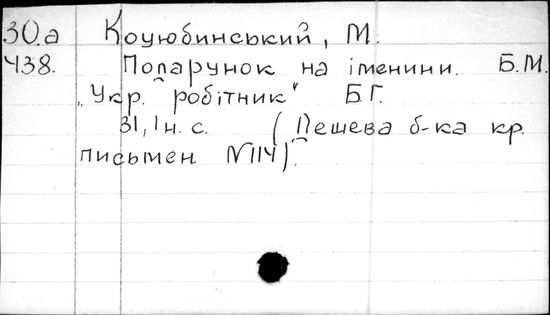 30.а Коцюбинський, М.
438. Подарунок на іменини. Б.М.
„Укр. робітник" Б.Г.
31, 1 н. с. (Дешева б-ка кр.
письмен. №114).